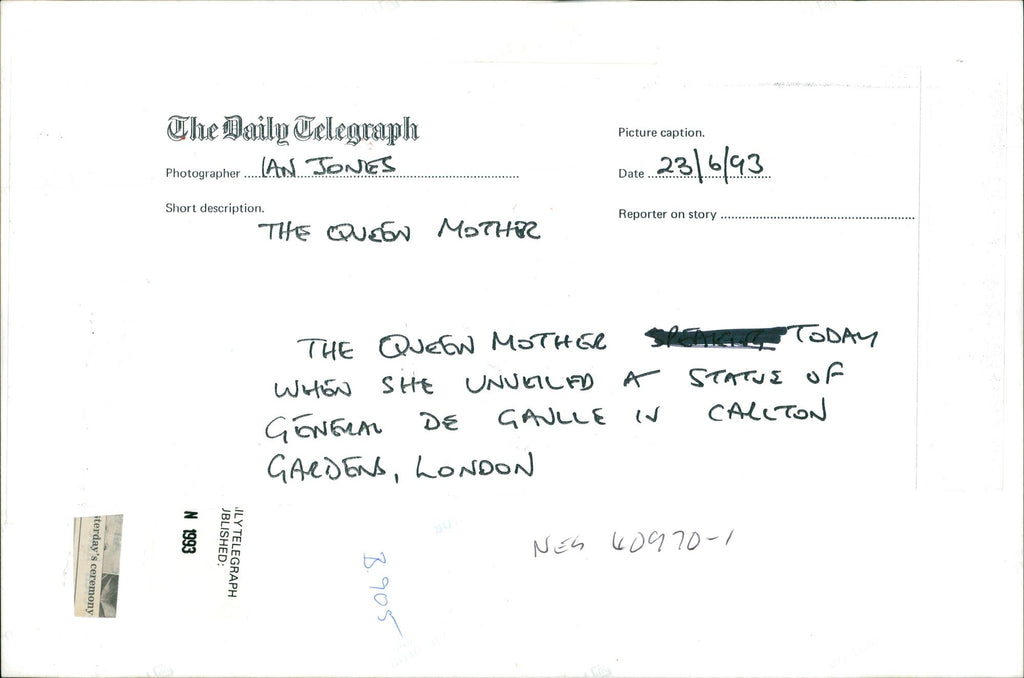 The Daily Telegraph
Picture caption.
Photographer ....IAN JONES
Date ..23/6/93
Short description.
Reporter on story
THE QUEEN MOTHER
THE QUEEN MOTHER SPEAKING TODAY
WHEN SHE UNVEILED A STATUE OF
GENERAL DE GAULLE IN CARLTON
GARDENS, LONDON
terday's ceremony
N 1993
ILY TELEGRAPH
BLISHED:
B.905
NEG 40970-1